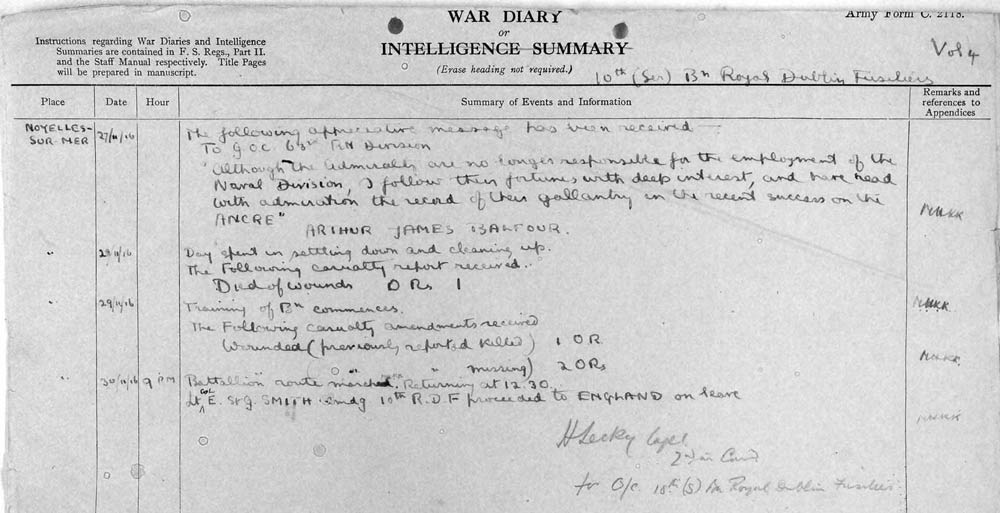 WAR DIARY
or
INTELLIGENCE SUMMARY
(Erase heading not required.)
Army Form C. 2118.
Instructions regarding War Diaries and Intelligence
Summaries are contained in F. S. Regs., Part II.
and the Staff Manual respectively. Title Pages
will be prepared in manuscript.
Vol 4
10th (Ser) Bn Royal Dublin Fusiliers
Place Date Hour Summary of Events and Information Remarks and references to Appendices
NOYELLES-SUR-MER 27/11/16 The following appreciative message has been received
To G.O.C 63rd RN Division
"Although the Admiralty are no longer responsible for the employment of the
Naval Division, I follow their fortunes with deep interest, and have read
with admiration the record of their gallantry in the recent success on the
ANCRE"
ARTHUR JAMES BALFOUR.
" 28/11/16 Day spent in settling down and cleaning up.
The Following casualty report received..
Died of wounds O Rs 1
" 29/11/16 Training of Bn commences.
The Following casualty amendments received
Wounded (previously reported killed) 1 OR
( " " missing) 2 ORs
" 30/11/16 9 PM Battalion route marched. Returning at 12.30.
Lt Col E. St G. SMITH cmdg 10th R.D.F proceeded to ENGLAND on leave
H Lecky Capt
2nd in Comd
for O/c 10th (S) Bn Royal Dublin Fusiliers